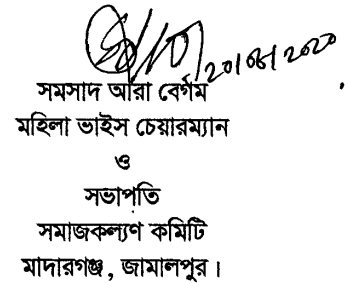 20/08/2020
সমসাদ আরা বেগম
মহিলা ভাইস চেয়ারম্যান
ও
সভাপতি
সমাজকল্যণ কমিটি
মাদারগঞ্জ, জামালপুর।